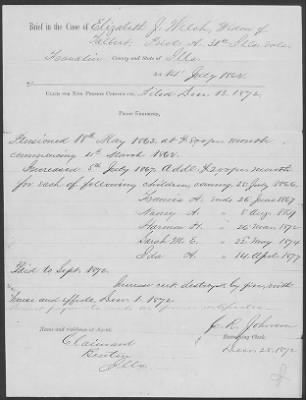 Brief in the Case of Elizabeth J. Welch, Widow of
Talbert, Priv. A. 31st Ills. Vols.
Franklin County and State of Ills.
Act 14th July 1862.
CLAIM FOR NEW PENSION CERTIFICATE, Filed Decr 12, 1872.
PROOF EXHIBITED,
Pensioned 18th May 1863 at $8 00 per month
commencing March 1862.
Increased 5th July 1867 Addl. $2 00 per month
for each of following children, commg. 25 July 1866.
Francis A. ends 26 June 1867
Nancy A. " 8 Aug. 1869
Harmon H. " 26 Mar. 1872
Sarah M. E. " 25 May 1874
Ida A. " 14 Apl 1877
Paid to Sept. 1872.
Increase cert. destroyed by fire, with
house and effects, Decr 1. 1872.
Name and residence of Agent.
Claimant
Benton
Ills.
C. R. Johnson
Examining Clerk.
Decr 28. 1872